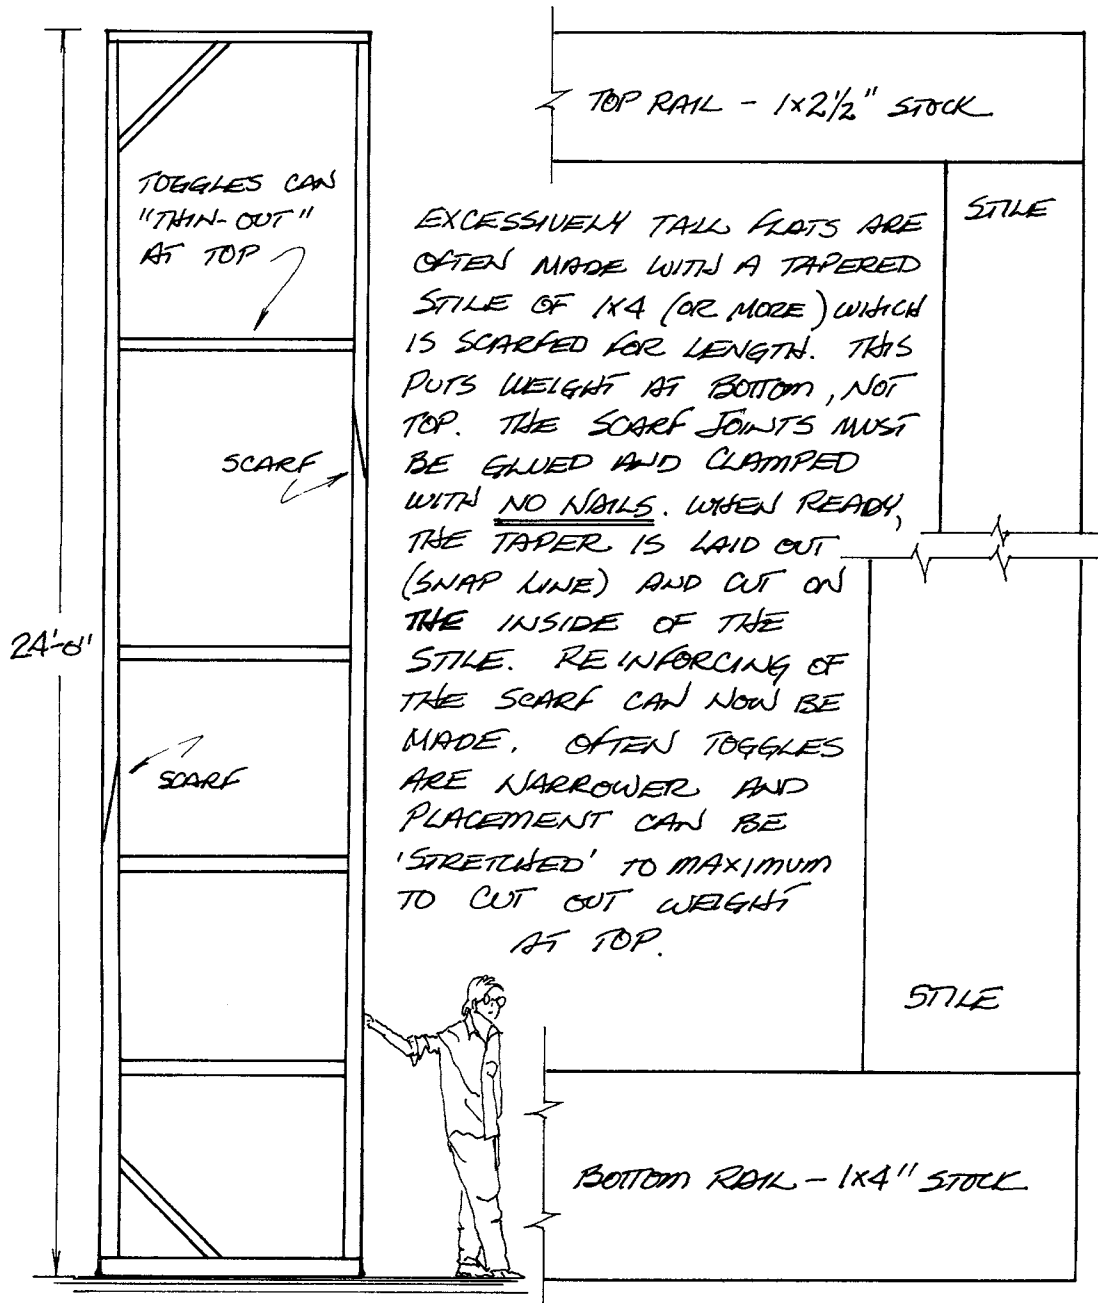 TOP RAIL - 1x2 1/2" STOCK
TOGGLES CAN
"THIN-OUT"
AT TOP
STILE
EXCESSIVELY TALL FLATS ARE
OFTEN MADE WITH A TAPERED
STILE OF 1x4 (OR MORE) WHICH
IS SCARFED FOR LENGTH. THIS
PUTS WEIGHT AT BOTTOM, NOT
TOP. THE SCARF JOINTS MUST
BE GLUED AND CLAMPED
WITH NO NAILS. WHEN READY,
THE TAPER IS LAID OUT
(SNAP LINE) AND CUT ON
THE INSIDE OF THE
STILE. REINFORCING OF
THE SCARF CAN NOW BE
MADE. OFTEN TOGGLES
ARE NARROWER AND
PLACEMENT CAN BE
'STRETCHED' TO MAXIMUM
TO CUT OUT WEIGHT
AT TOP.
SCARF
24'-0"
SCARF
STILE
BOTTOM RAIL - 1x4" STOCK